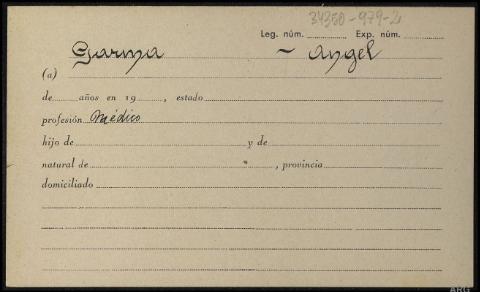 34350-979-2
Leg. núm. Exp. núm.
Garma - Angel
(a)
de años en 19 , estado
profesión Médico
hijo de y de
natural de , provincia
domiciliado
ARG